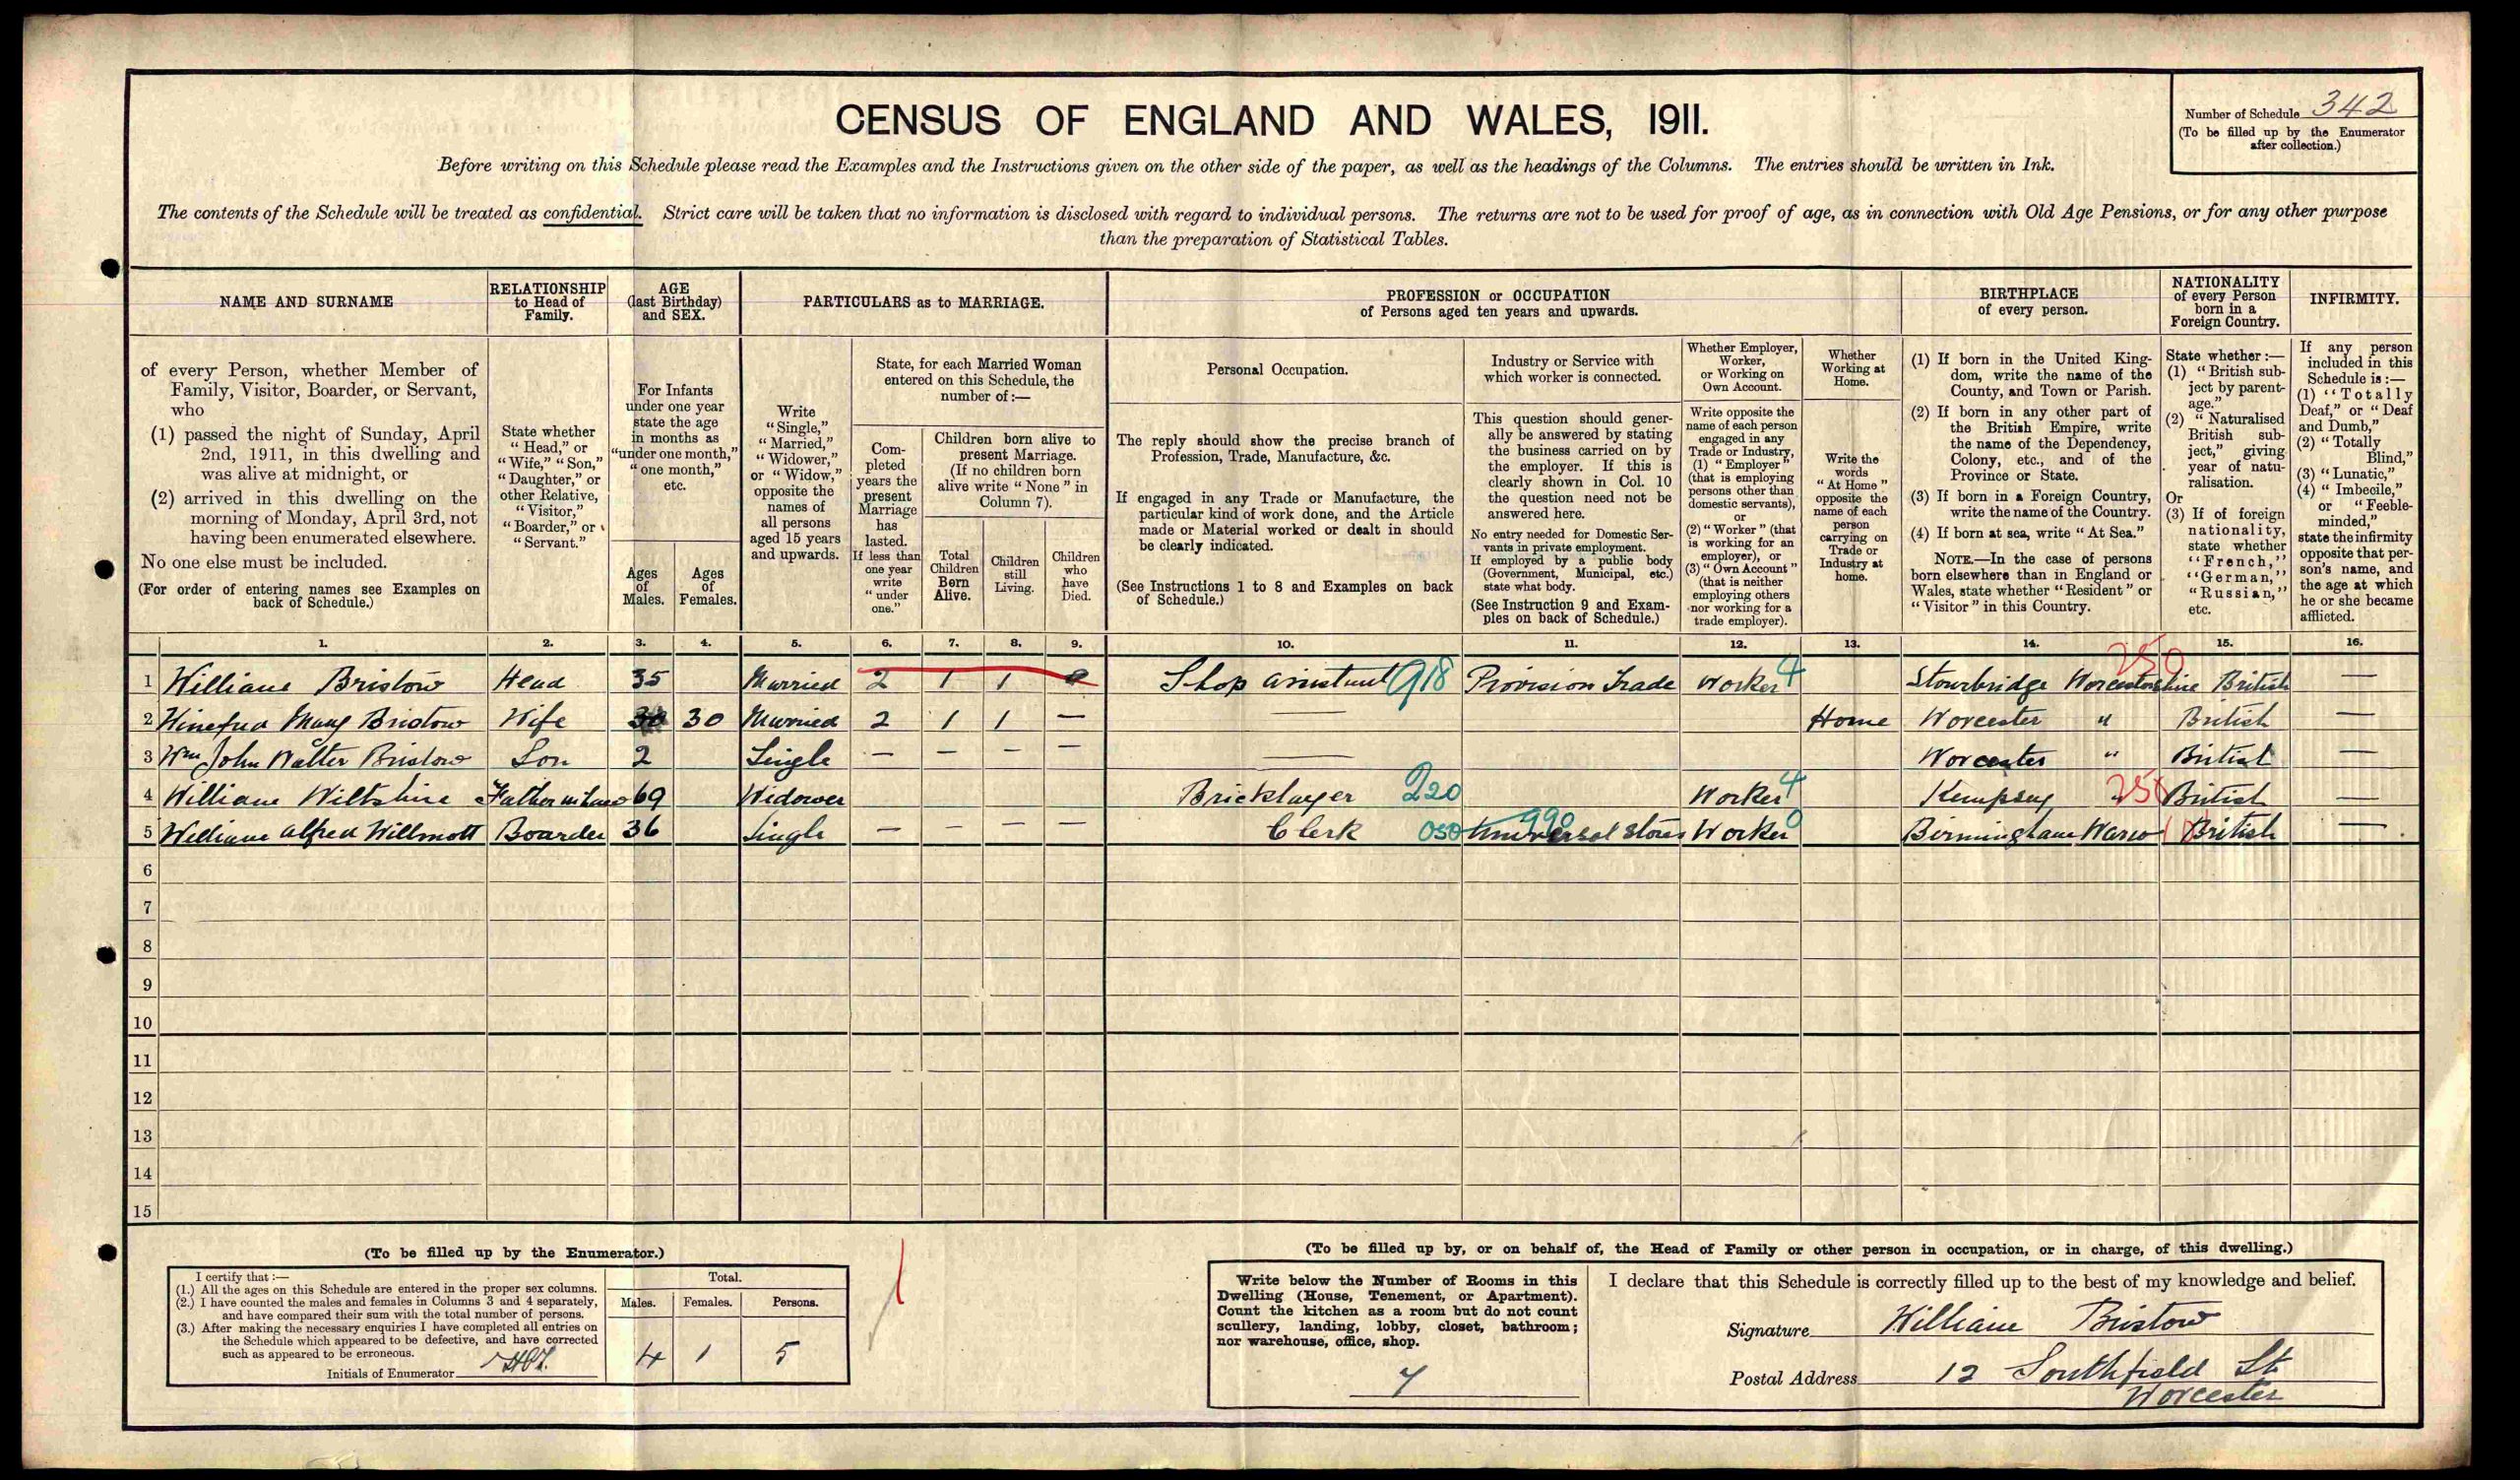 CENSUS OF ENGLAND AND WALES, 1911.
Number of Schedule 342
(To be filled up by the Enumerator
after collection.)
Before writing on this Schedule please read the Examples and the Instructions given on the other side of the paper, as well as the headings of the Columns. The entries should be written in Ink.
The contents of the Schedule will be treated as confidential. Strict care will be taken that no information is disclosed with regard to individual persons. The returns are not to be used for proof of age, as in connection with Old Age Pensions, or for any other purpose
than the preparation of Statistical Tables.
NAME AND SURNAME
of every Person, whether Member of
Family, Visitor, Boarder, or Servant,
who
(1) passed the night of Sunday, April
2nd, 1911, in this dwelling and
was alive at midnight, or
(2) arrived in this dwelling on the
morning of Monday, April 3rd, not
having been enumerated elsewhere.
No one else must be included.
(For order of entering names see Examples on
back of Schedule.)
RELATIONSHIP
to Head of
Family.
State whether
"Head," or
"Wife," "Son,"
"Daughter," or
other Relative,
"Visitor,"
"Boarder," or
"Servant."
AGE
(last Birthday)
and SEX.
For Infants
under one year
state the age
in months as
"under one month,"
"one month,"
etc.
Ages
of
Males.
Ages
of
Females.
PARTICULARS as to MARRIAGE.
Write
"Single,"
"Married,"
"Widower,"
or "Widow,"
opposite the
names of
all persons
aged 15 years
and upwards.
State, for each Married Woman
entered on this Schedule, the
number of:—
Com-
pleted
years the
present
Marriage
has
lasted.
If less than
one year
write
"under
one."
Children born alive to
present Marriage.
(If no children born
alive write "None" in
Column 7).
Total
Children
Born
Alive.
Children
still
Living.
Children
who
have
Died.
PROFESSION or OCCUPATION
of Persons aged ten years and upwards.
Personal Occupation.
The reply should show the precise branch of
Profession, Trade, Manufacture, &c.
If engaged in any Trade or Manufacture, the
particular kind of work done, and the Article
made or Material worked or dealt in should
be clearly indicated.
(See Instructions 1 to 8 and Examples on back
of Schedule.)
Industry or Service with
which worker is connected.
This question should gener-
ally be answered by stating
the business carried on by
the employer. If this is
clearly shown in Col. 10
the question need not be
answered here.
No entry needed for Domestic Ser-
vants in private employment.
If employed by a public body
(Government, Municipal, etc.)
state what body.
(See Instruction 9 and Exam-
ples on back of Schedule.)
Whether Employer,
Worker,
or Working on
Own Account.
Write opposite the
name of each person
engaged in any
Trade or Industry,
(1) "Employer"
(that is employing
persons other than
domestic servants),
or
(2) "Worker" (that
is working for an
employer), or
(3) "Own Account"
(that is neither
employing others
nor working for a
trade employer).
Whether
Working at
Home.
Write the
words
"At Home"
opposite the
name of each
person
carrying on
Trade or
Industry at
home.
BIRTHPLACE
of every person.
(1) If born in the United King-
dom, write the name of the
County, and Town or Parish.
(2) If born in any other part of
the British Empire, write
the name of the Dependency,
Colony, etc., and of the
Province or State.
(3) If born in a Foreign Country,
write the name of the Country.
(4) If born at sea, write "At Sea."
NOTE.—In the case of persons
born elsewhere than in England or
Wales, state whether "Resident" or
"Visitor" in this Country.
NATIONALITY
of every Person
born in a
Foreign Country.
State whether:—
(1) "British sub-
ject by parent-
age."
(2) "Naturalised
British sub-
ject," giving
year of natu-
ralisation.
Or
(3) If of foreign
nationality,
state whether
"French,"
"German,"
"Russian,"
etc.
INFIRMITY.
If any person
included in this
Schedule is:—
(1) "Totally
Deaf," or "Deaf
and Dumb,"
(2) "Totally
Blind,"
(3) "Lunatic,"
(4) "Imbecile,"
or "Feeble-
minded,"
state the infirmity
opposite that per-
son's name, and
the age at which
he or she became
afflicted.
1. 2. 3. 4. 5. 6. 7. 8. 9. 10. 11. 12. 13. 14. 15. 16.
1 William Bristow Head 35 Married 2 1 1 Shop assistant 918 Provision Trade Worker 4 Stourbridge Worcestershire 250 British —
2 Winefred Mary Bristow Wife 30 Married 2 1 1 — — Home Worcester " British —
3 Wm John Walter Bristow Son 2 Single — — — — — Worcester " British —
4 William Wiltshire Father in Law 69 Widower Bricklayer 220 Worker 4 Kempsey " 250 British —
5 William Alfred Willmott Boarder 36 Single — — — — Clerk 050 Universal Stores 990 Worker 0 Birmingham Warw British —
6
7
8
9
10
11
12
13
14
15
(To be filled up by the Enumerator.)
I certify that:—
(1.) All the ages on this Schedule are entered in the proper sex columns.
(2.) I have counted the males and females in Columns 3 and 4 separately,
and have compared their sum with the total number of persons.
(3.) After making the necessary enquiries I have completed all entries on
the Schedule which appeared to be defective, and have corrected
such as appeared to be erroneous.
Initials of Enumerator
Total.
Males. Females. Persons.
4 1 5
(To be filled up by, or on behalf of, the Head of Family or other person in occupation, or in charge, of this dwelling.)
Write below the Number of Rooms in this
Dwelling (House, Tenement, or Apartment).
Count the kitchen as a room but do not count
scullery, landing, lobby, closet, bathroom;
nor warehouse, office, shop.
7
I declare that this Schedule is correctly filled up to the best of my knowledge and belief.
Signature William Bristow
Postal Address 12 Southfield St
Worcester